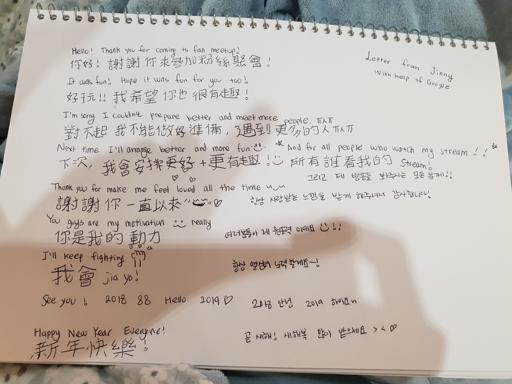 Hello! Thank you for coming to fan meetup!
你好! 謝謝你來參加粉絲聚會!
Letter from Jinny
With help of Google
It was fun! Hope it was fun for you too!
好玩!! 我希望你也很有趣!
I'm sorry I couldn't prepare better and meet more people. ㅠㅠ
對不起 我不能做好準備, 遇到更多的人ㅠㅠ
Next time I'll arrange better and more fun
下次, 我會安排更好 + 更有趣!
* And for all people who watch my stream!!
所有誰看我的 stream!
그리고 제 방송을 보시는 모든 분께!!
Thank you for make me feel loved all the time ~~
謝謝你一直以來~
항상 사랑받는 느낌을 받게 해주셔서 감사합니다!
You guys are my motivation really
你是我的動力
여러분들이 제 원동력 이에요 !!
I'll keep fighting
我會 jia yo!
항상 열심히 노력할게요~!
See you! 2018 88 Hello 2019 ♡
2018 안녕 2019 하이요~
Happy New Year Everyone!
新年快樂!
곧 새해! 새해복 많이 받으세요 > < ♡